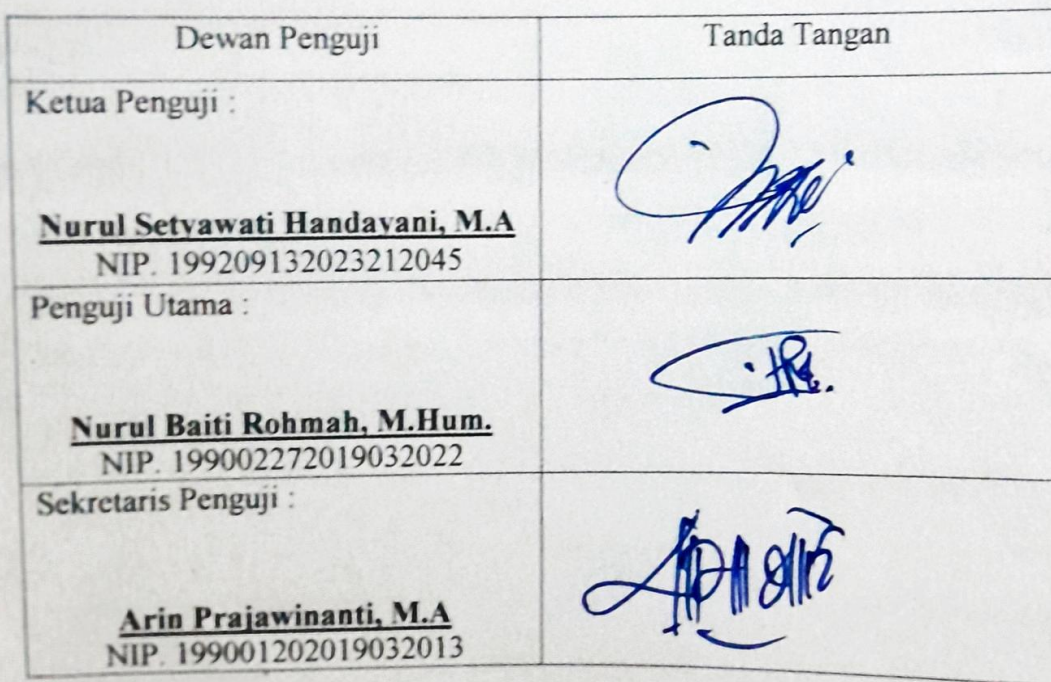 Dewan Penguji
Tanda Tangan
Ketua Penguji :
Nurul Setyawati Handayani, M.A
NIP. 199209132023212045
Penguji Utama :
Nurul Baiti Rohmah, M.Hum.
NIP. 199002272019032022
Sekretaris Penguji :
Arin Prajawinanti, M.A
NIP. 199001202019032013